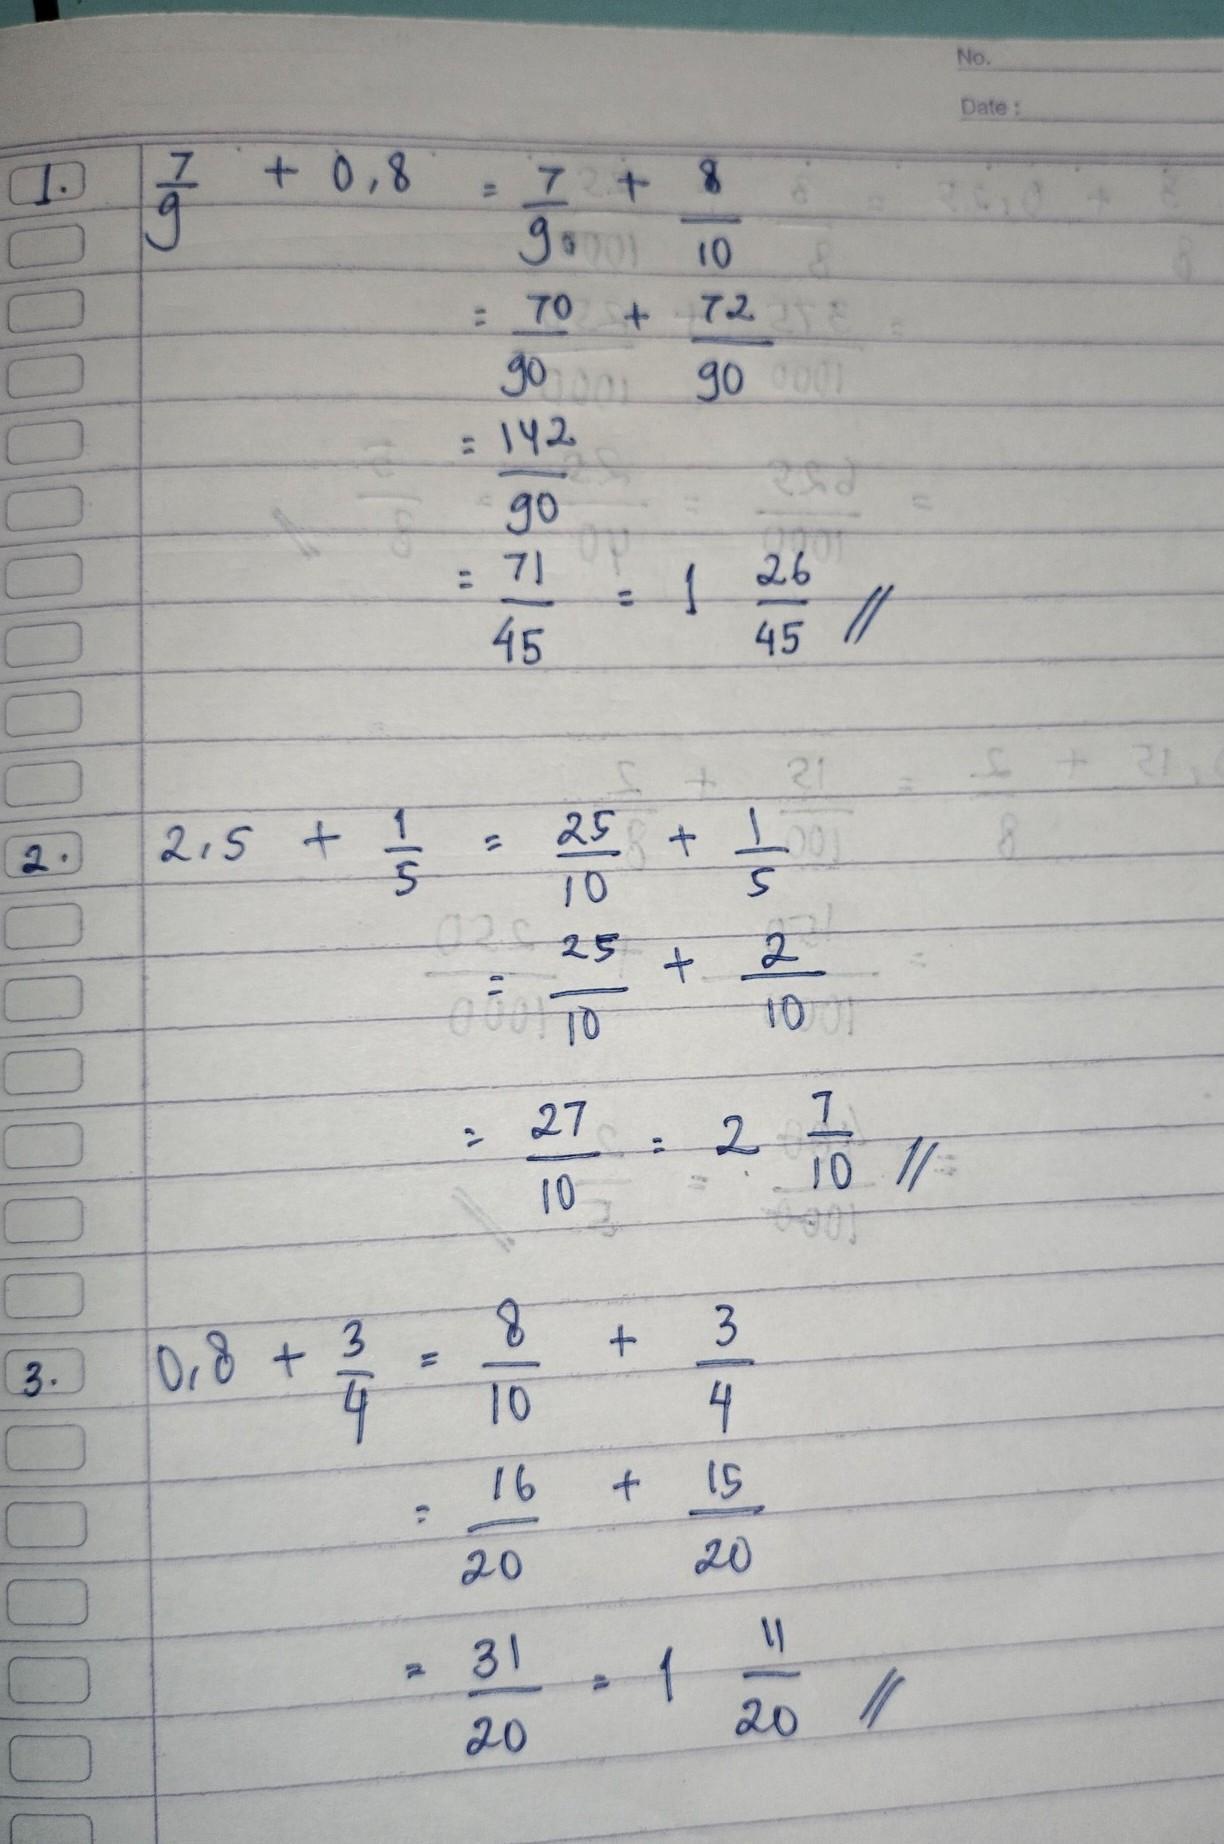 No.
Date :
1. 7/9 + 0,8 = 7/9 + 8/10
= 70/90 + 72/90
= 142/90
= 71/45 = 1 26/45 //
2. 2,5 + 1/5 = 25/10 + 1/5
= 25/10 + 2/10
= 27/10 = 2 7/10 //
3. 0,8 + 3/4 = 8/10 + 3/4
= 16/20 + 15/20
= 31/20 = 1 11/20 //